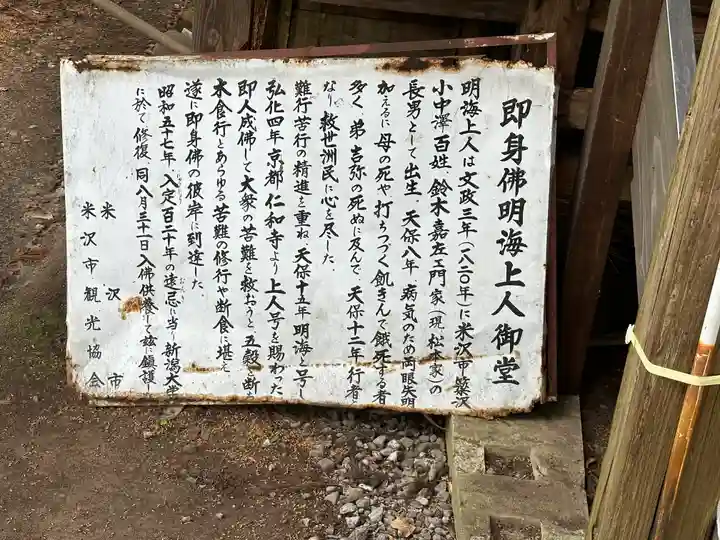 即身佛明海上人御堂
明海上人は文政三年(一八二〇年)に米沢市簗沢
小中澤百姓、鈴木嘉左ェ門家(現、松本家)の
長男として出生、天保八年、病気のため両眼失明
加えるに母の死や打ちつづく飢きんで餓死する者
多く弟吉弥の死ぬに及んで、天保十二年行者
なり救世洲民に心を尽した。
難行苦行の精進を重ね天保十五年明海と号し
弘化四年京都仁和寺より上人号を賜わった
即人成佛して大衆の苦難を救おうと、五穀を断
木食行とあらゆる苦難の修行や断食に堪え
遂に即身佛の彼岸に到達した。
昭和五十七年、入定百二十年の遠忌に当り新潟大学
おんき
に於て修復、同八月三十一日入佛供養して茲に鎮護
米沢市
米沢市観光協会